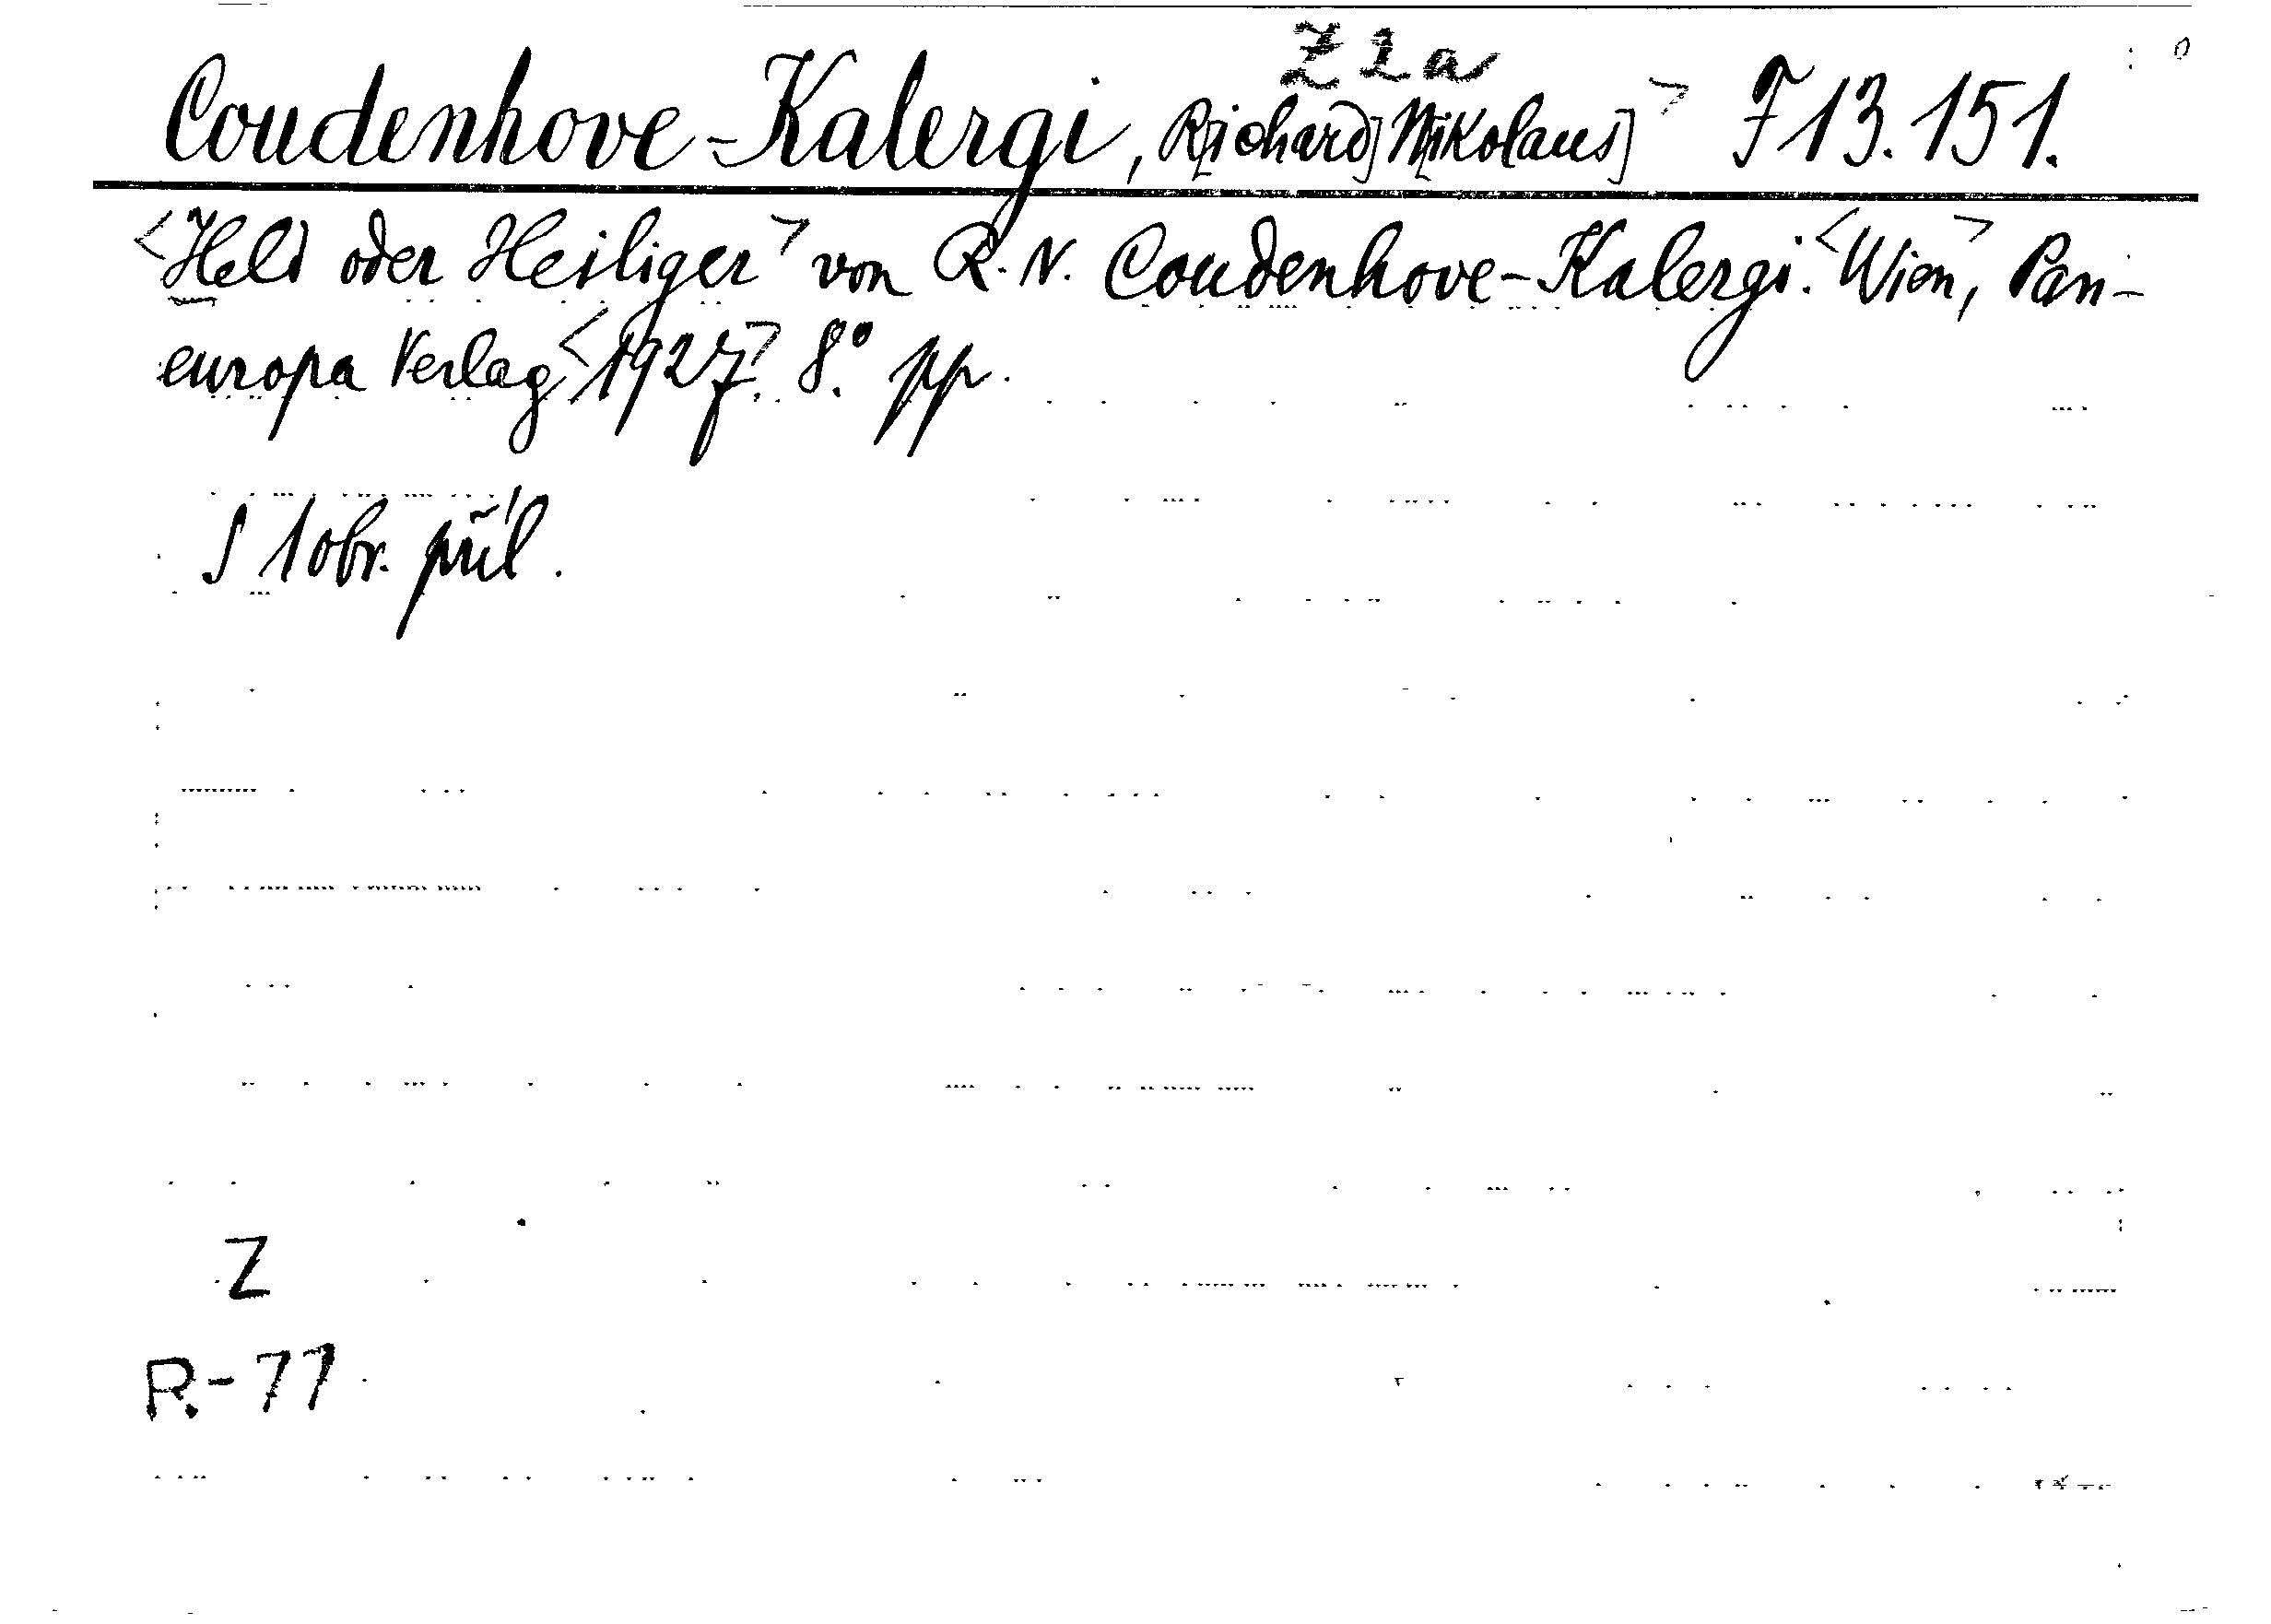 Z 2a
Coudenhove-Kalergi, R[ichard] N[ikolaus]> F 13.151.
<Held oder Heiliger> von R. N. Coudenhove-Kalergi. <Wien>, Pan-
europa Verlag <1927>. 8°. pp.
S 1 obr. příl.
Z
R.-77